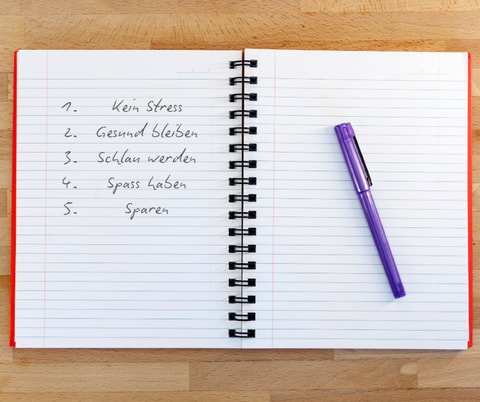 1. Kein Stress
2. Gesund bleiben
3. Schlau werden
4. Spass haben
5. Sparen